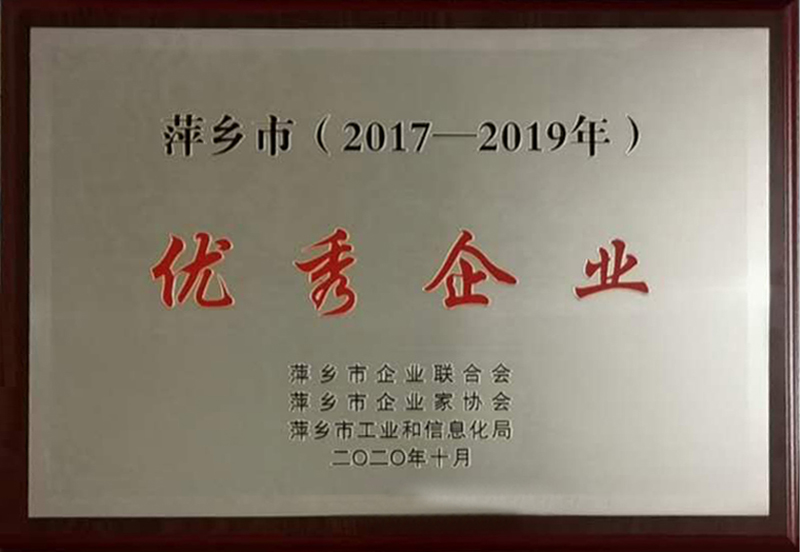 萍乡市（2017—2019年）
优秀企业
萍乡市企业联合会
萍乡市企业家协会
萍乡市工业和信息化局
二〇二〇年十月